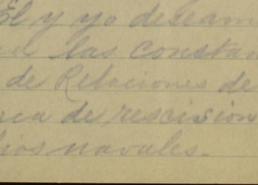 El y yo deseam
las constan
de Relaciones de
de rescision
ios navales.